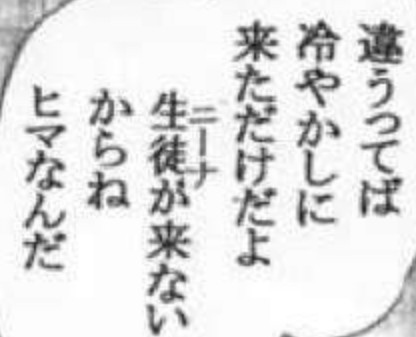 違うってば
冷やかしに
来ただけだよ
生徒が来ない
ニーナ
からね
ヒマなんだ